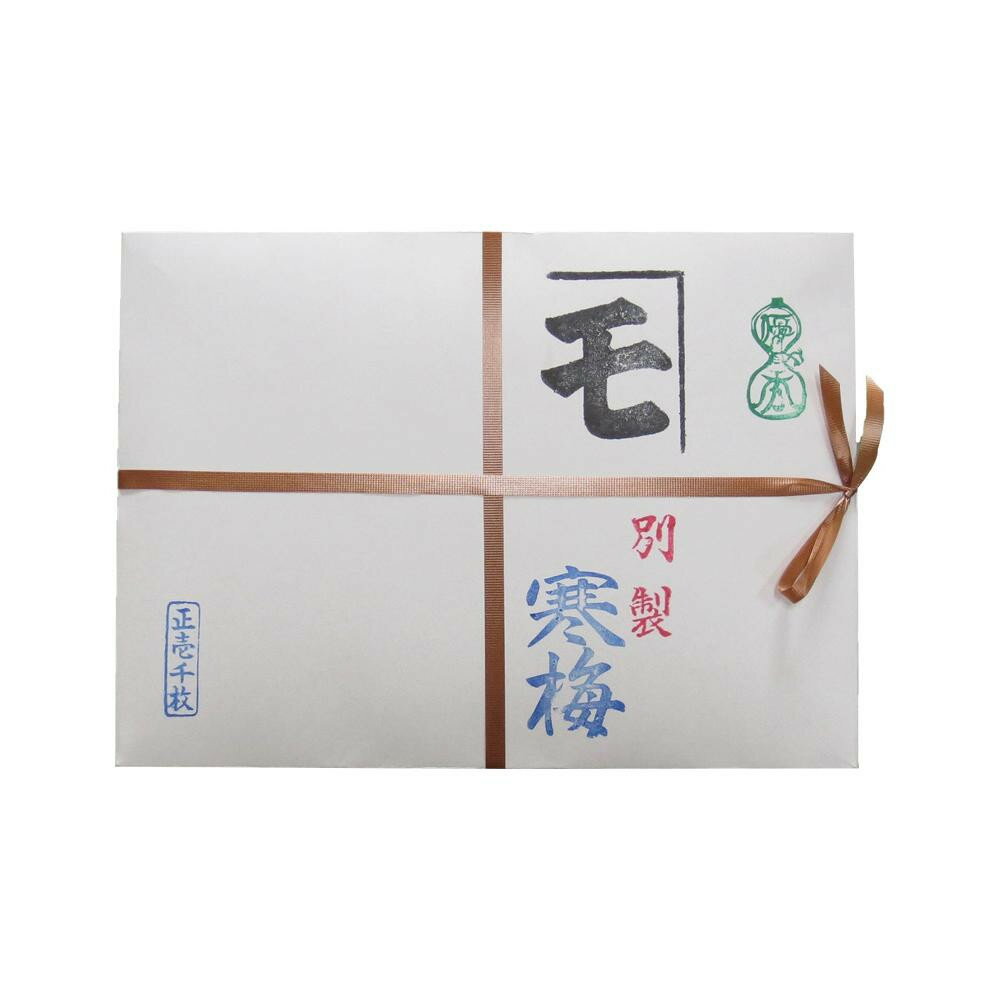 モ
別製
寒梅
正壱千枚